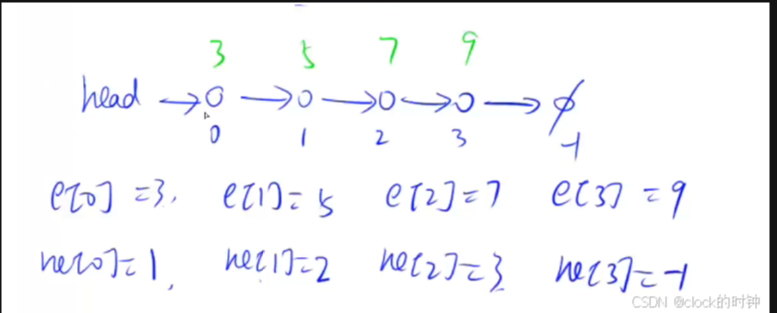 3 5 7 9
head →o →o →o →o →∅
0 1 2 3 -1
e[0]=3, e[1]=5 e[2]=7 e[3]=9
ne[0]=1, ne[1]=2 ne[2]=3 ne[3]=-1
CSDN @clock的时钟